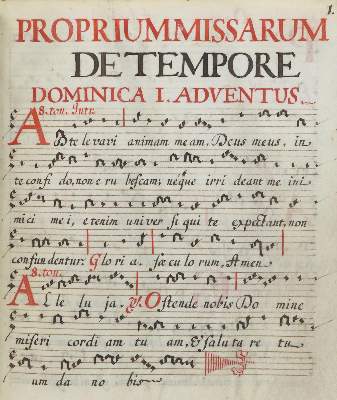 1.
PROPRIUM MISSARUM
DE TEMPORE
DOMINICA I. ADVENTUS.
8. ton. Intr.
AD te levavi animam meam, Deus meus, in
te confi do, non e ru bescam: neque irri deant me ini
mici me i, etenim univer si qui te expectant, non
confundentur. Glo ri a. sæ cu lo rum, Amen
8. ton.
Al le lu ja. V. Ostende nobis Do mine
miseri cordi am tu am, & saluta re tu
um da no bis